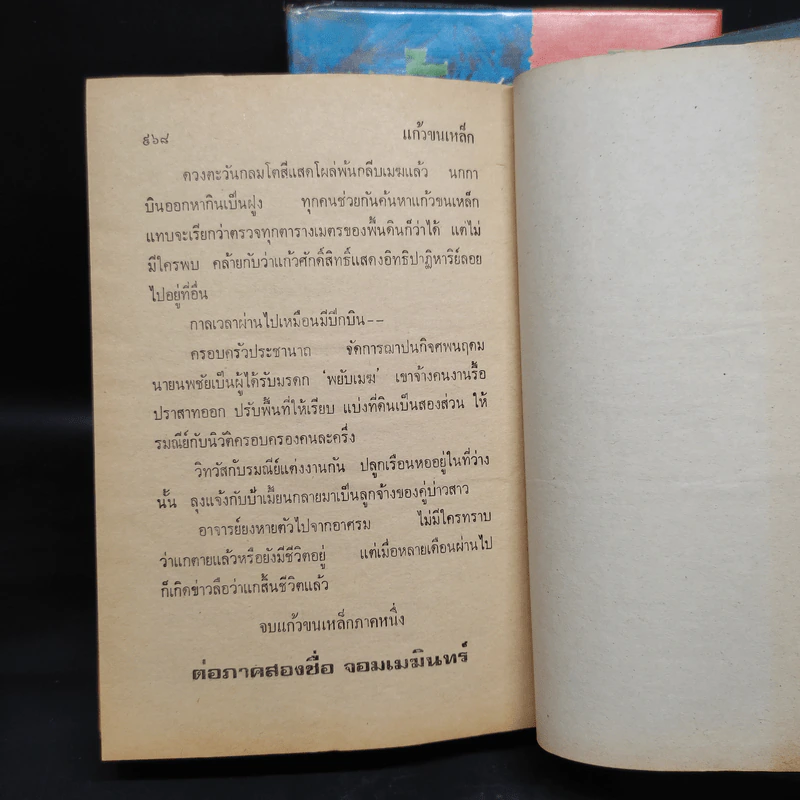 ๙๖๘ แก้วขนเหล็ก
ดวงตะวันกลมโตสีแสดโผล่พ้นกลีบเมฆแล้ว นกกา
บินออกหากินเป็นฝูง ทุกคนช่วยกันค้นหาแก้วขนเหล็ก
แทบจะเรียกว่าตรวจทุกตารางเมตรของพื้นดินก็ว่าได้ แต่ไม่
มีใครพบ คล้ายกับว่าแก้วศักดิ์สิทธิ์แสดงอิทธิปาฏิหาริย์ลอย
ไปอยู่ที่อื่น
กาลเวลาผ่านไปเหมือนมีปีกบิน--
ครอบครัวประชานาถ จัดการฌาปนกิจศพนฤดม
นายนพชัยเป็นผู้ได้รับมรดก ‘พยับเมฆ’ เขาจ้างคนงานรื้อ
ปราสาทออก ปรับพื้นที่ให้เรียบ แบ่งที่ดินเป็นสองส่วน ให้
รมณีย์กับนิวัติครอบครองคนละครึ่ง
วิทวัสกับรมณีย์แต่งงานกัน ปลูกเรือนหออยู่ในที่ว่าง
นั้น ลุงแจ้งกับป้าเมี้ยนกลายมาเป็นลูกจ้างของคู่บ่าวสาว
อาจารย์ยงหายตัวไปจากอาศรม ไม่มีใครทราบ
ว่าแกตายแล้วหรือยังมีชีวิตอยู่ แต่เมื่อหลายเดือนผ่านไป
ก็เกิดข่าวลือว่าแกสิ้นชีวิตแล้ว
จบแก้วขนเหล็กภาคหนึ่ง
ต่อภาคสองชื่อ จอมเมฆินทร์